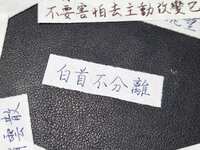 不要害怕去主動改變
白首不分離
雲散